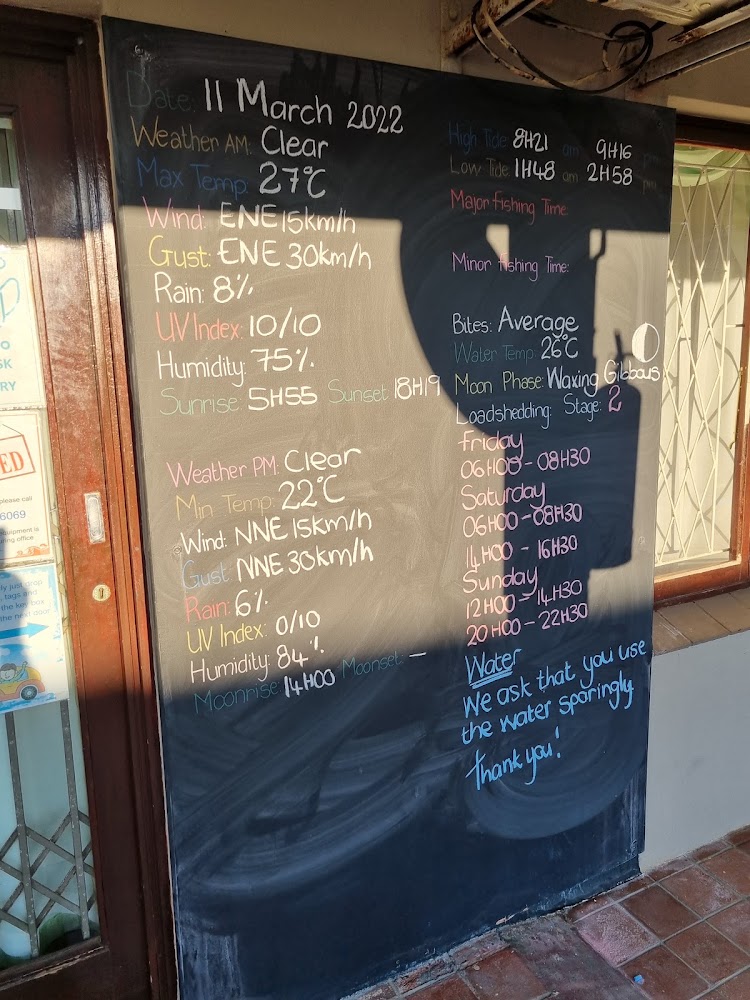 Date: 11 March 2022
Weather AM: Clear
Max Temp: 27°C
Wind: ENE 15km/h
Gust: ENE 30km/h
Rain: 8%
UV Index: 10/10
Humidity: 75%
Sunrise: 5H55 Sunset: 18H19
Weather PM: Clear
Min Temp: 22°C
Wind: NNE 15km/h
Gust: NNE 30km/h
Rain: 6%
UV Index: 0/10
Humidity: 84%
Moonrise: 14H00 Moonset: —
High Tide: 8H21 am 9H16 pm
Low Tide: 1H48 am 2H58 pm
Major fishing Time:
Minor fishing Time:
Bites: Average
Water Temp: 26°C
Moon Phase: Waxing Gibbous
Loadshedding: Stage: 2
Friday
06H00 - 08H30
Saturday
06H00 - 08H30
14H00 - 16H30
Sunday
12H00 - 14H30
20H00 - 22H30
Water
We ask that you use
the water sparingly.
Thank you!
SK
RY
ED
please call
6069
equipment is
office
just drop
tags and
the key box
the next door